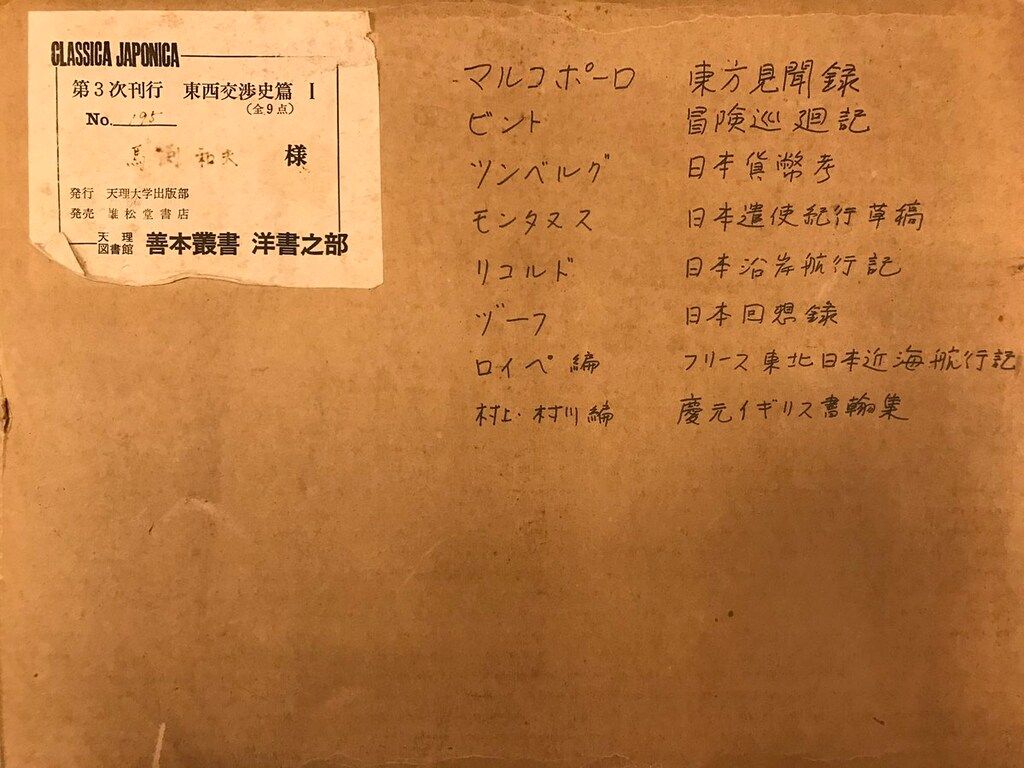 CLASSICA JAPONICA
第3次刊行 東西交渉史篇 I
(全9点)
No. 195
馬渕和夫 様
発行 天理大学出版部
発売 雄松堂書店
天理図書館 善本叢書 洋書之部
マルコポーロ 東方見聞録
ビント 冒険巡廻記
ツンベルグ 日本貨幣考
モンタヌス 日本遣使紀行草稿
リコルド 日本沿岸航行記
ヅーフ 日本回想録
ロイペ編 フリース東北日本近海航行記
村上・村川編 慶元イギリス書翰集